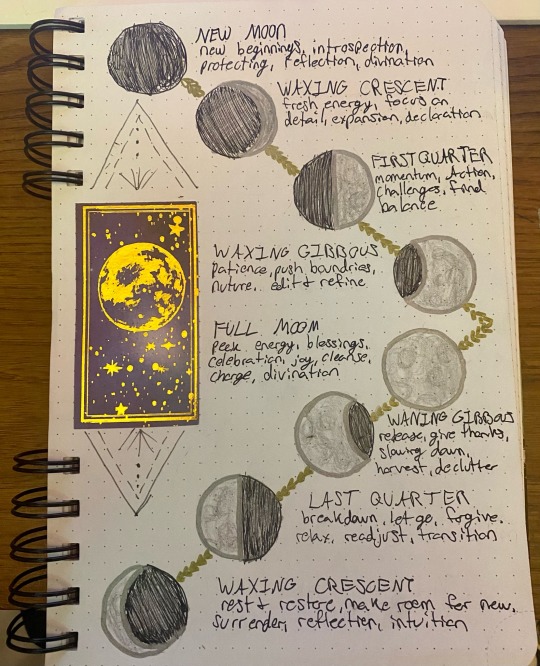 NEW MOON
new beginnings, introspection,
protecting, reflection, divination
WAXING CRESCENT
fresh energy, focus on
detail, expansion, declaration
FIRST QUARTER
momentum, Action,
challenges, find
balance
WAXING GIBBOUS
Patience, push boundries,
nuture, edit & refine
FULL MOOM
peek energy, blessings,
celebration, joy, cleanse,
charge, divination
WANING GIBBOUS
release, give thanks,
slowing down,
harvest, declutter
LAST QUARTER
breakdown, let go, forgive.
relax, readjust, transition
WAXING CRESCENT
rest & restore, make room for new,
surrender, reflection, intuition